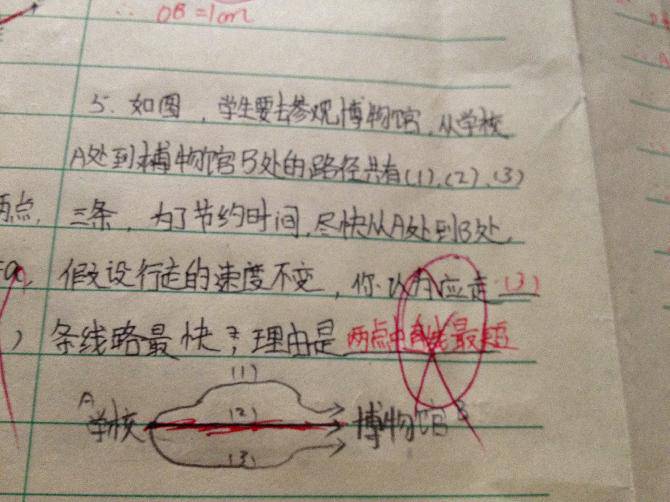 OB=1cm
5. 如图，学生要去参观博物馆，从学校
A处到博物馆B处的路径共有(1)、(2)、(3)
两点, 三条，为了节约时间，尽快从A处到B处，
假设行走的速度不变，你认为应走 (3)
) 条线路最快？理由是 两点中直线最短
(1)
A
学校 (2) 博物馆 B
(3)